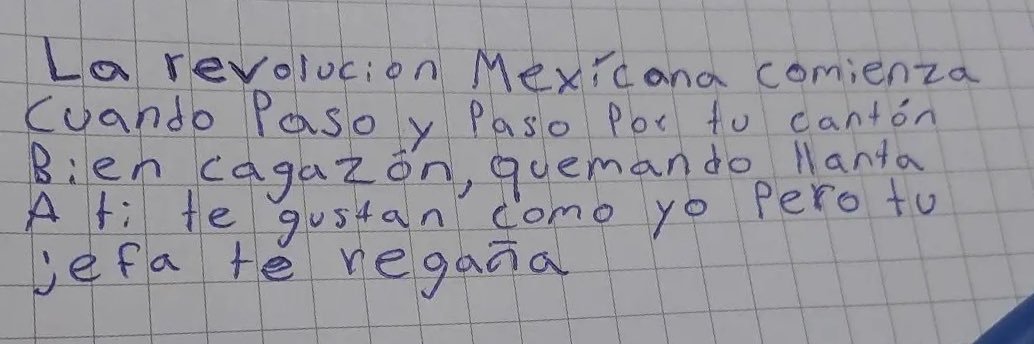 La revolucion Mexicana comienza
Cuando Paso y Paso Por tu cantón
Bien cagazón, quemando llanta
A ti te gustan como yo Pero tu
jefa te regaña